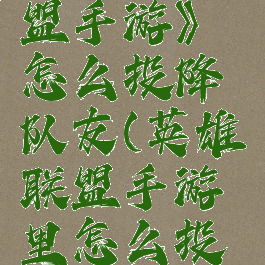 盟手游》
怎么投降
队友(英雄
联盟手游
里怎么投